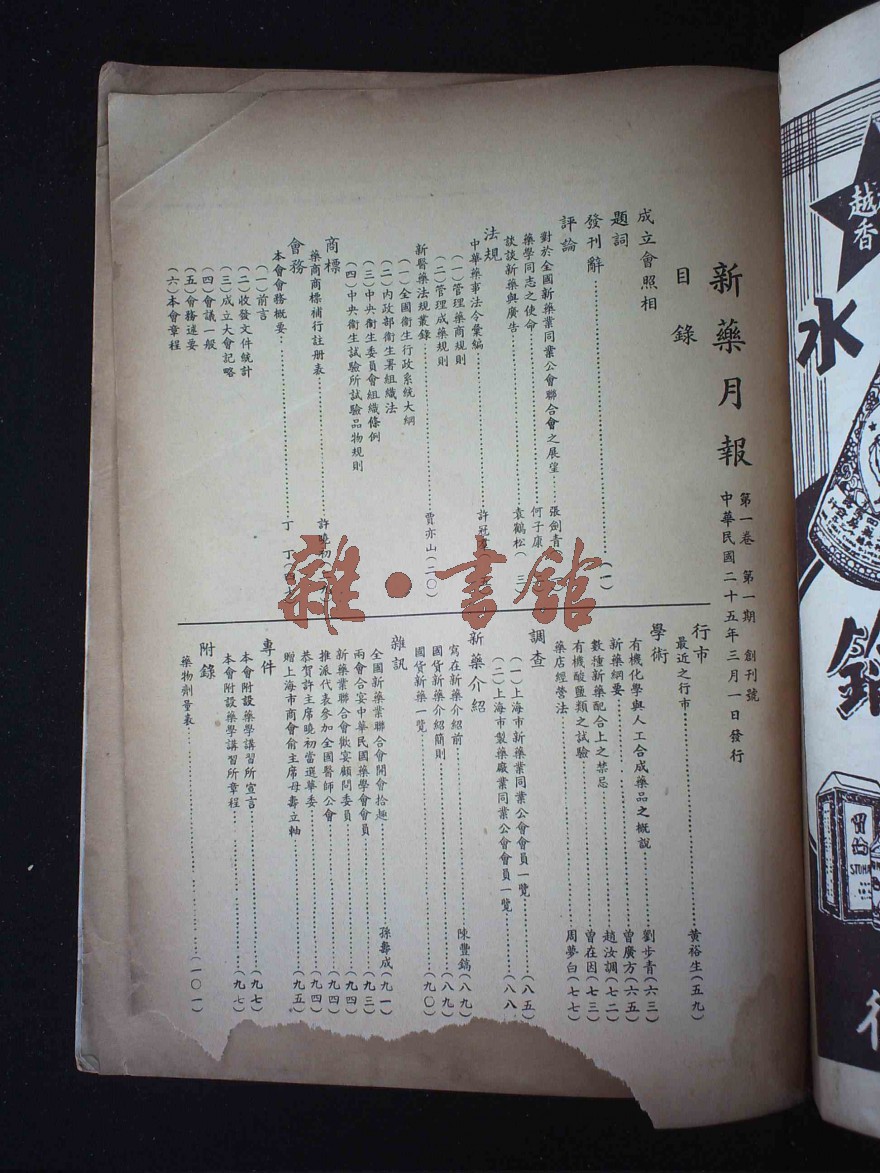 新藥月報
第一卷 第一期 創刊號
中華民國二十五年三月一日發行
目錄
成立會照相
題詞
發刊辭……(一)
評論
對於全國新藥業同業公會聯合會之展望……張劍青
藥學同志之使命……何子康
談談新藥與廣告……袁鶴松(三)
法規
中華藥事法令彙編……許冠
(一)管理藥商規則
(二)管理成藥規則
新醫藥法規叢錄……賈亦山(二〇)
(一)全國衛生行政系統大綱
(二)內政部衛生署組織法
(三)中央衛生委員會組織條例
(四)中央衛生試驗所試驗品物規則
商標
藥商商標補行註册表……許曉初
會務
本會會務概要……丁 丁(四七
(一)前言
(二)收發文件統計
(三)成立大會記略
(四)會議一般
(五)會務述要
(六)本會章程
行市
最近之行市……黃裕生(五九)
學術
有機化學與人工合成藥品之概說……劉步青(六三)
新藥綱要……曾廣方(六五)
數種新藥配合上之禁忌……趙汝調(七二)
有機酸鹽類之試驗……曾在因(七三)
藥店經營法……周夢白(七七)
調查
(一)上海市新藥業同業公會會員一覽……(八五)
(二)上海市製藥廠業同業公會會員一覽……(八八
新藥介紹
寫在新藥介紹前……陳豐鎬(八九)
國貨新藥介紹簡則……(八九)
國貨新藥一覽……(九〇)
雜訊
全國新藥業聯合會開會拾趣……孫壽成(九一)
兩會合宴中華民國藥學會會員……(九三)
新藥業聯合會歡宴顧問委員……(九四)
推派代表參加全國醫師公會……(九四)
恭賀許主席曉初當選華委……(九四)
贈上海市商會俞主席母壽立軸……(九五)
專件
本會附設藥學講習所宣言……(九七)
本會附設藥學講習所章程……(九七)
附錄
藥物劑量表……(一〇一)
雜·書館
越
香
水
胃
STOMA